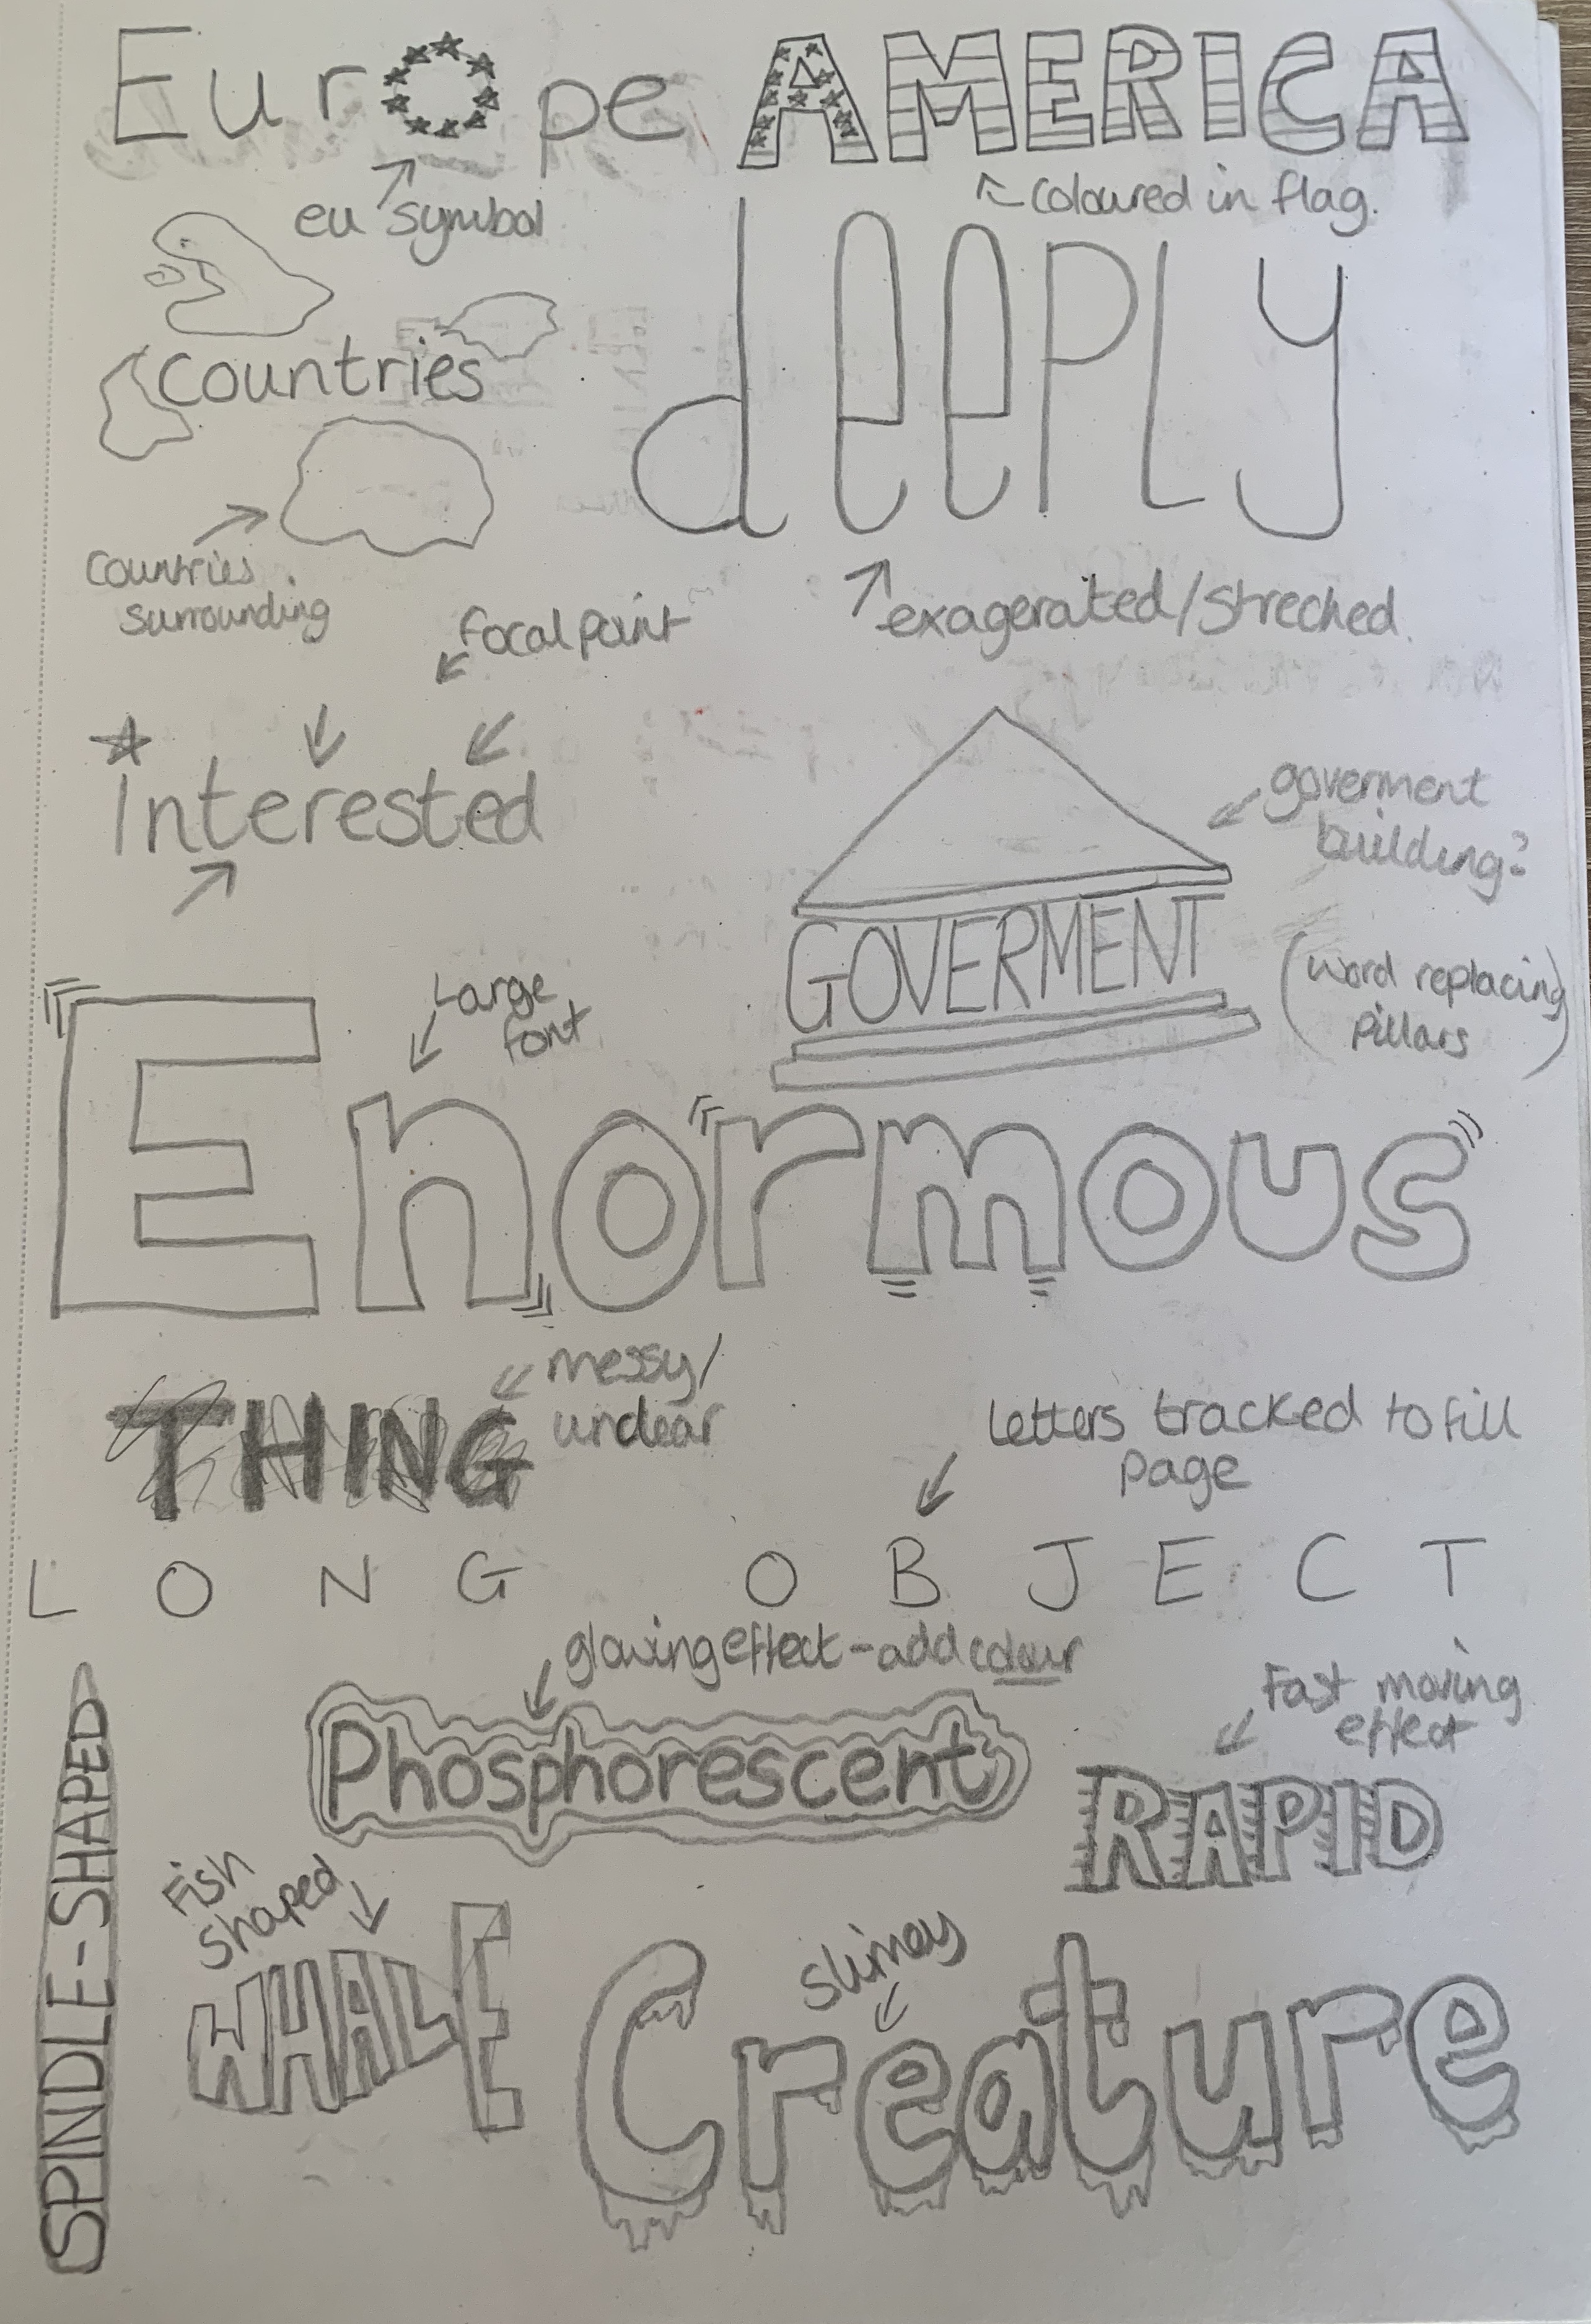 Europe AMERICA
eu symbol
coloured in flag.
countries
deePLy
countries
surrounding
exagerated/streched.
focal point
Interested
goverment
building?
GOVERMENT
(word replacing
pillars)
Large
font
Enormous
THING
messy/
unclear
Letters tracked to fill
page
LONG OBJECT
glowing effect - add colour
Phosphorescent
Fast moving
effect
RAPID
SPINDLE-SHAPED
Fish
shaped
WHALE
slimey
Creature